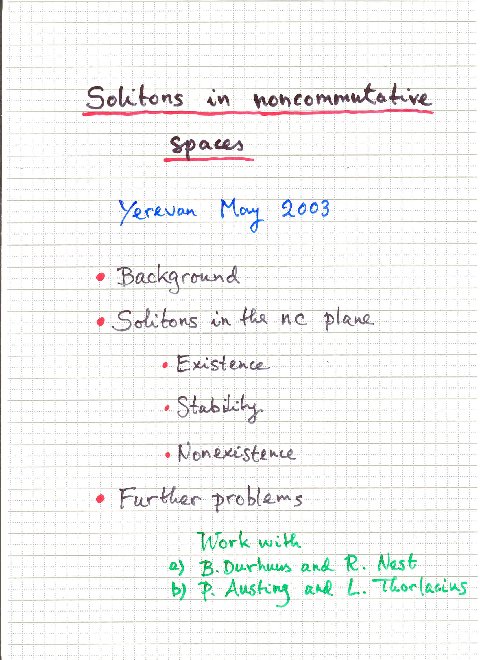 Solitons in noncommutative
spaces
Yerevan May 2003
• Background
• Solitons in the nc plane
• Existence
• Stability
• Nonexistence
• Further problems
Work with
a) B. Durhuus and R. Nest
b) P. Austing and L. Thorlacius